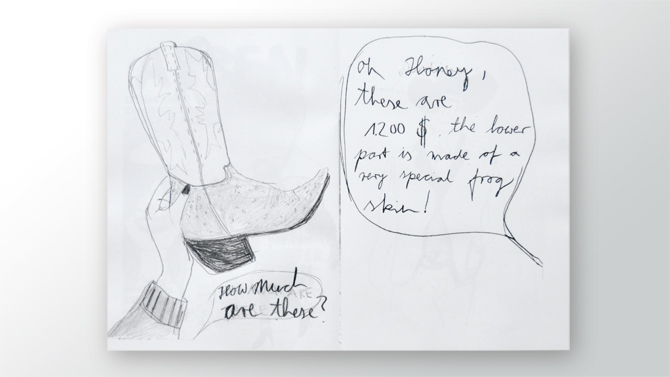 How Much
are these?
Oh Honey,
these are
1200 $. the lower
part is made of a
very special frog
skin!